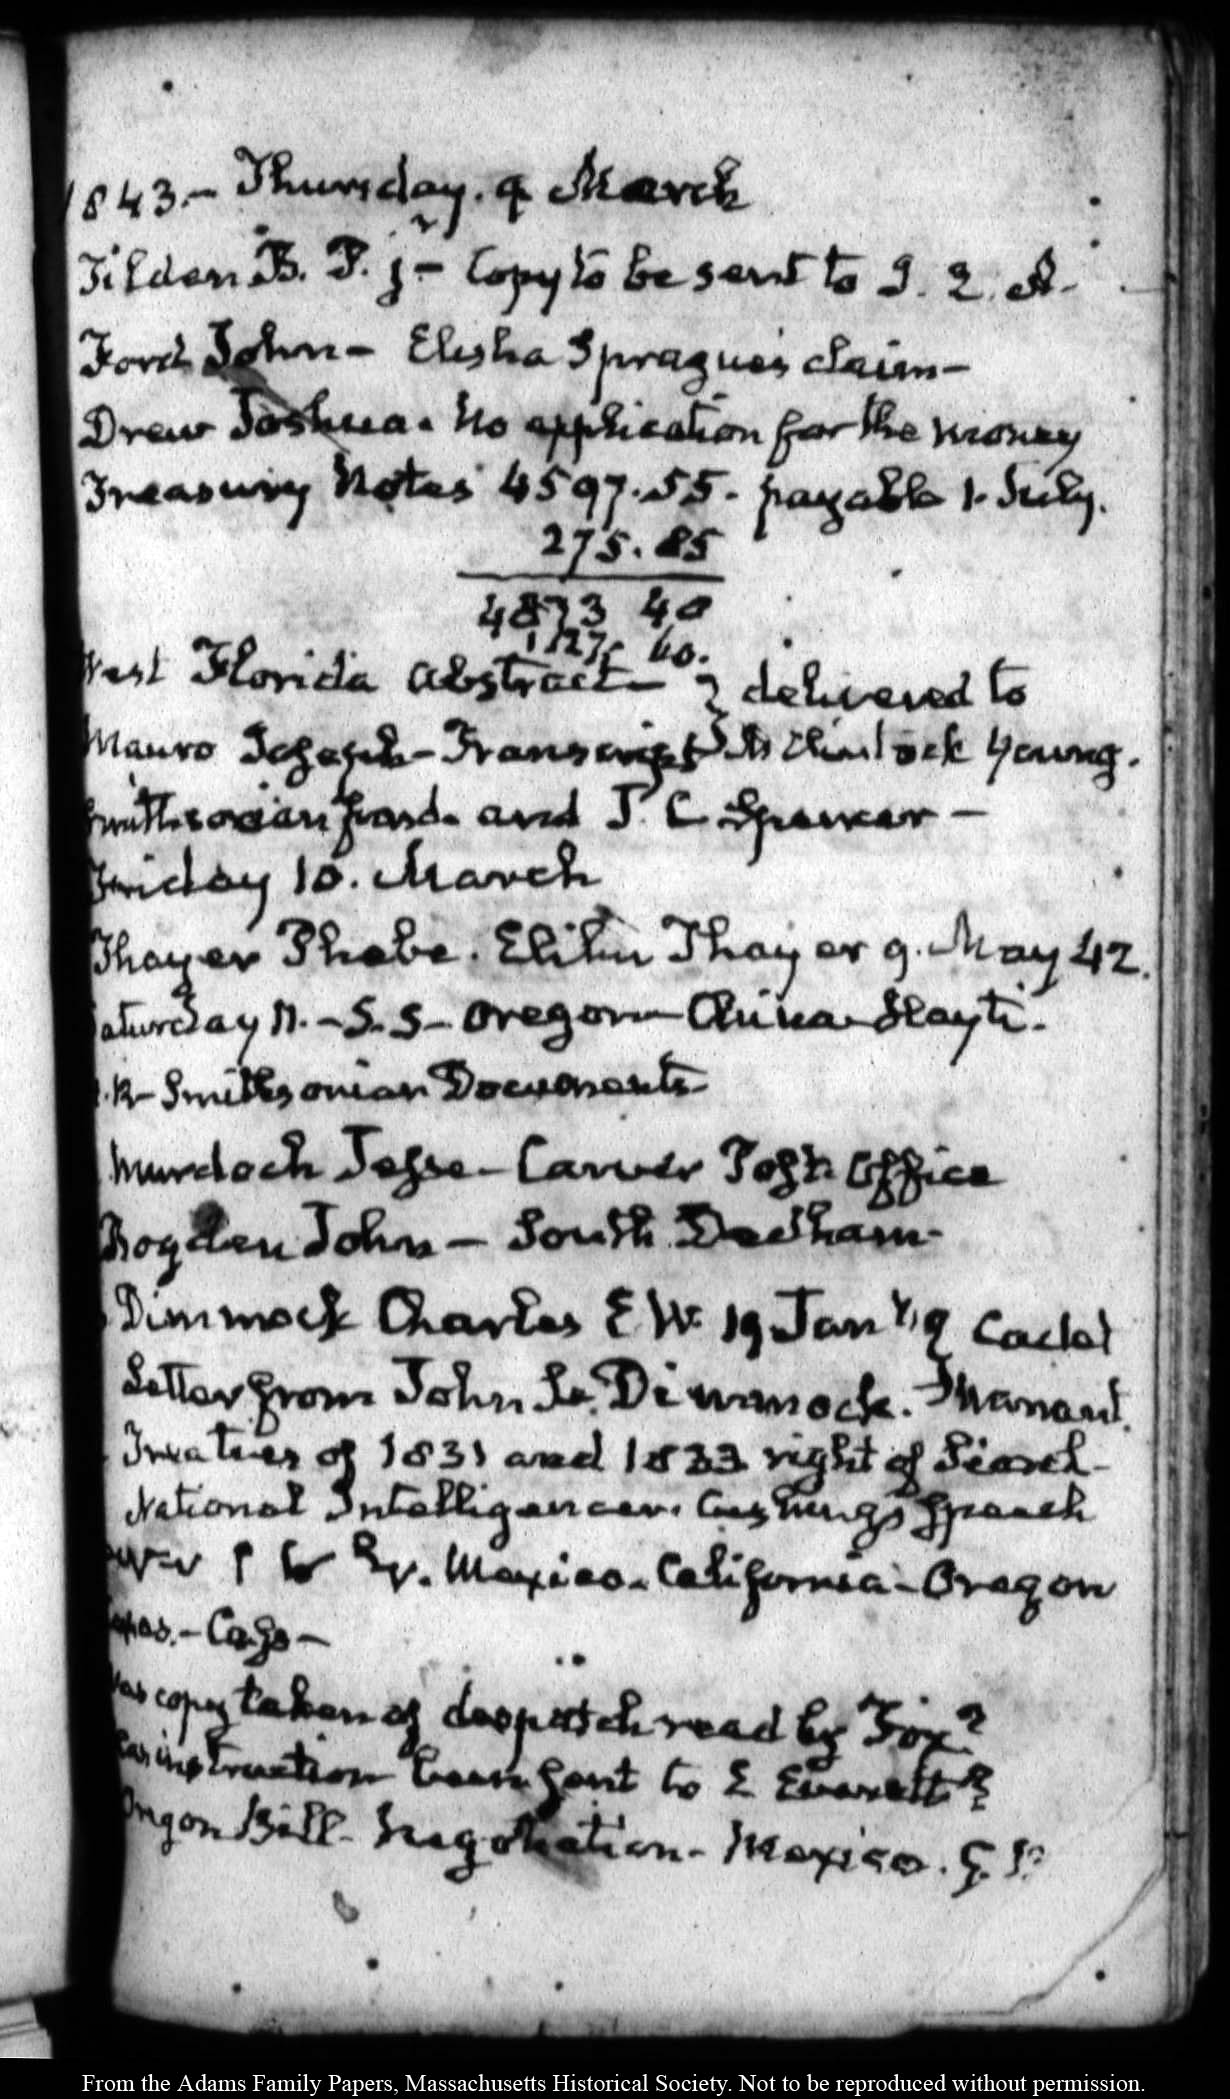 1843.- Thursday. 9 March
Tilden B. P. j - Copy to be sent to J. Q. A.
Ford John - Elisha Sprague's claim -
Drew Joshua. No application for the money
Treasury Notes 4597.55. payable 1. July.
275.85
4873 40
60.
West Florida Abstract - delivered to
Mauro Joseph - Transcript McClintock Young.
Smithsonian fund. and J. C Spencer -
Friday 10. March
Thayer Phebe. Elihu Thayer 9. May 42.
Saturday 11. - S. S - Oregon - China - Hayti.
Smithsonian Documents
Murdoch Jesse - Carver Post Office
Rogden John - South Dedham -
Dimmock Charles E W. 19 Jany Cadet
Letter from John L. Dimmock.
Treaties of 1831 and 1833 right of Search -
National Intelligencer. Cushing's Speech
Mexico - California - Oregon
Texas. - Cass -
Was copy taken of despatch read by Fox?
Has instruction been sent to E Everett?
Oregon Bill - Negotiation - Mexico.
From the Adams Family Papers, Massachusetts Historical Society. Not to be reproduced without permission.